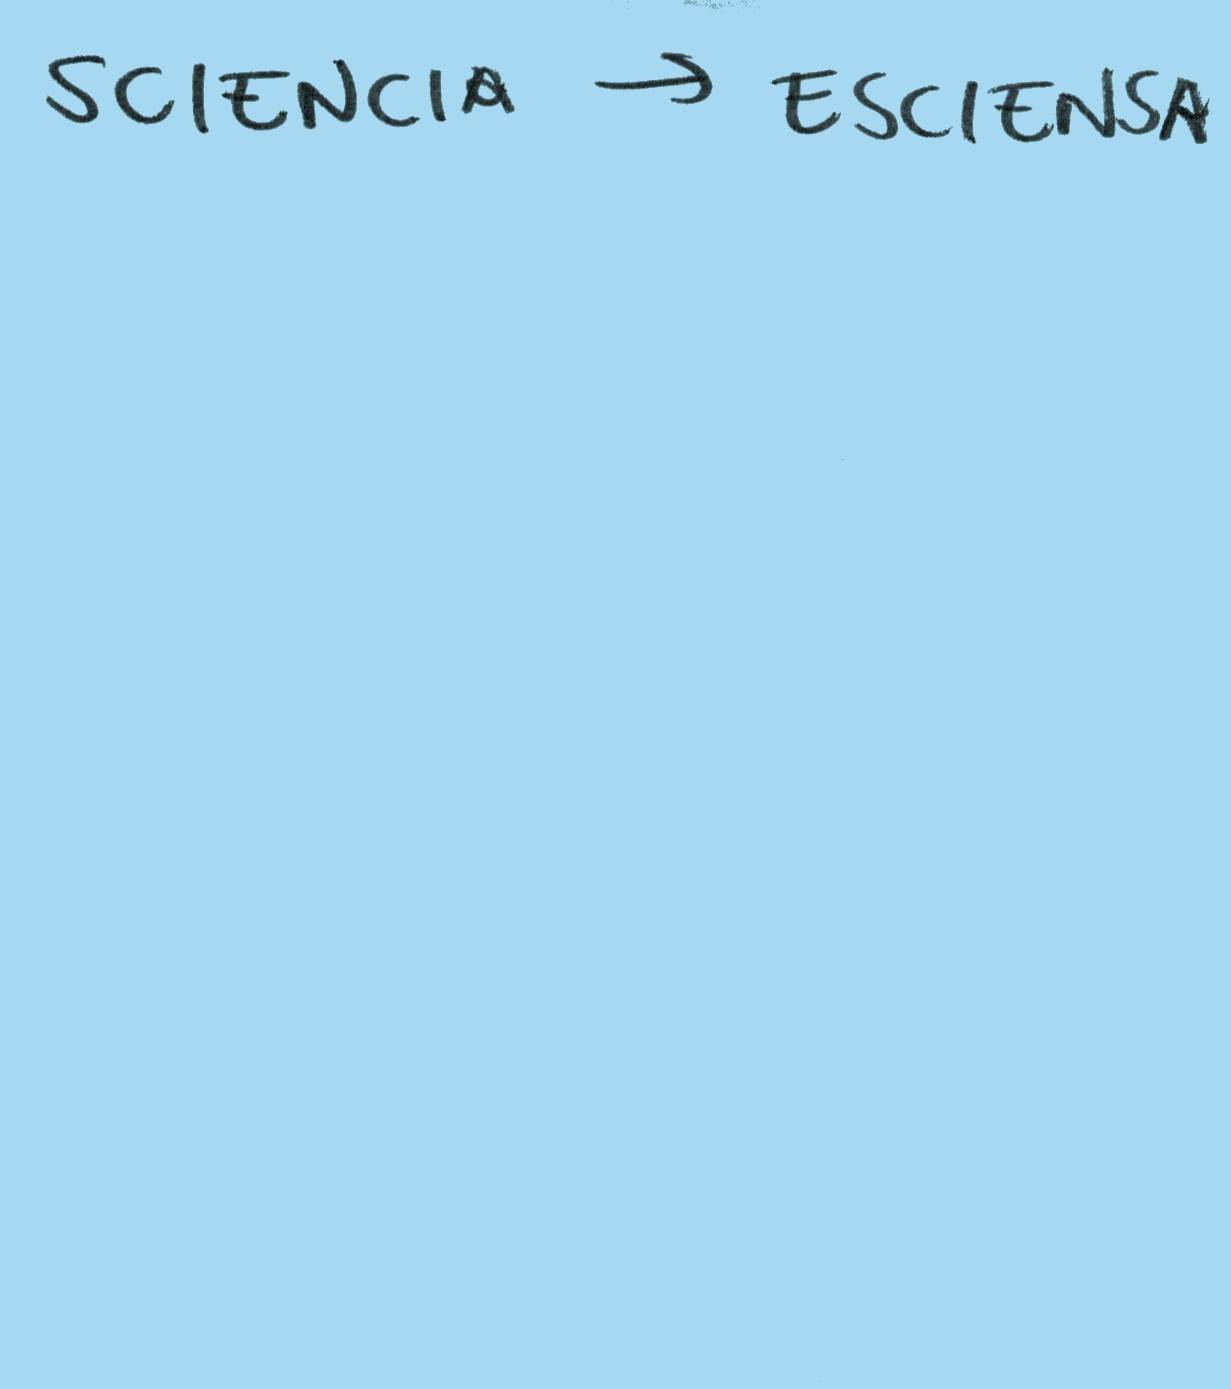 SCIENCIA → ESCIENSA